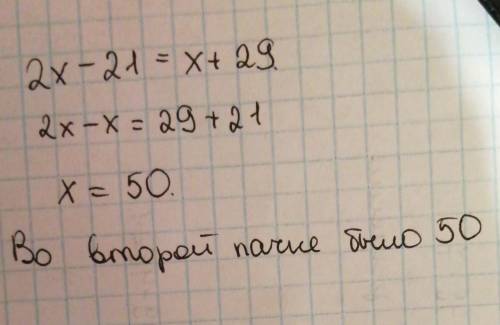 2x - 21 = x + 29.
2x - x = 29 + 21
x = 50.
Во второй пачке было 50